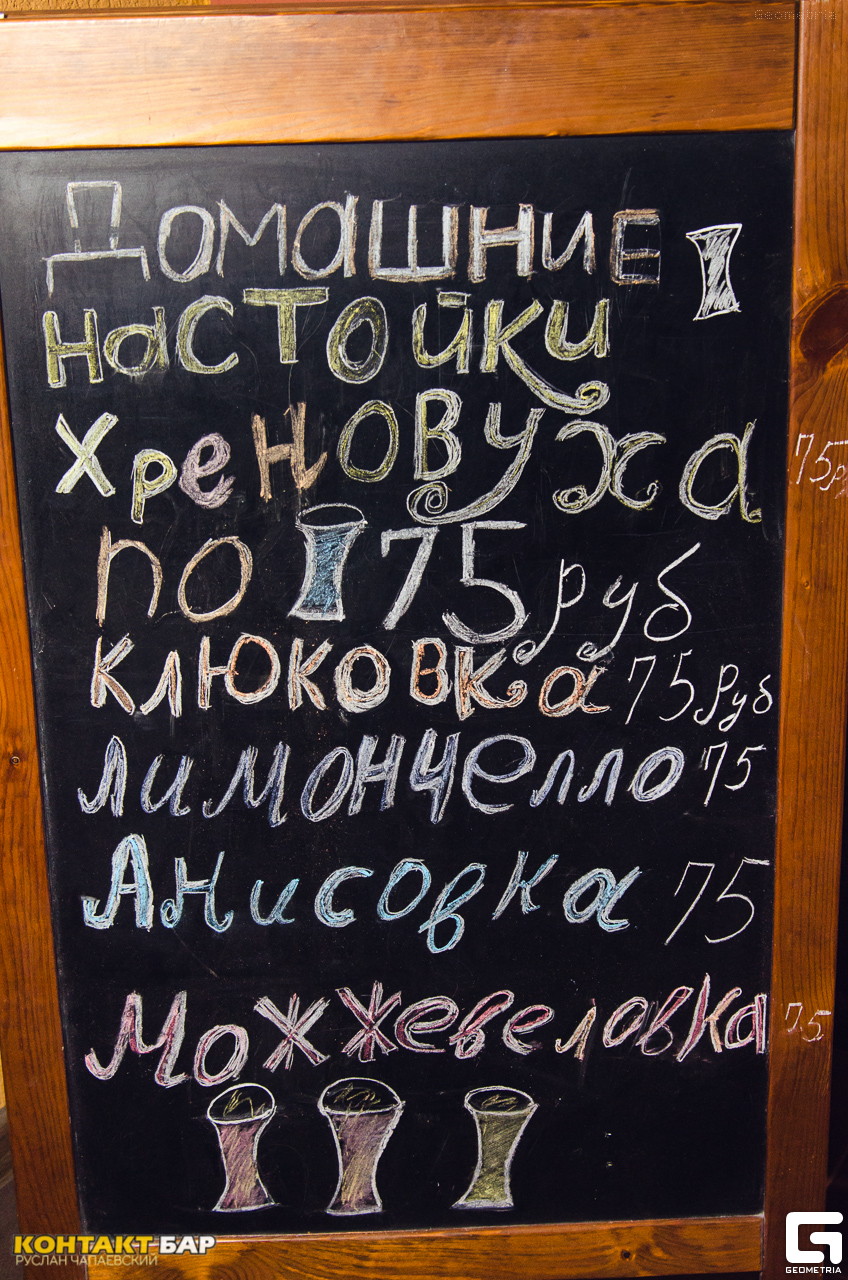 Geometria
Домашние
настойки
хреновуха 75р
по 75 руб
клюковка 75 руб
лимончелло 75
Анисовка 75
Можжевеловка 75
КОНТАКТ БАР
РУСЛАН ЧАПАЕВСКИЙ
GEOMETRIA